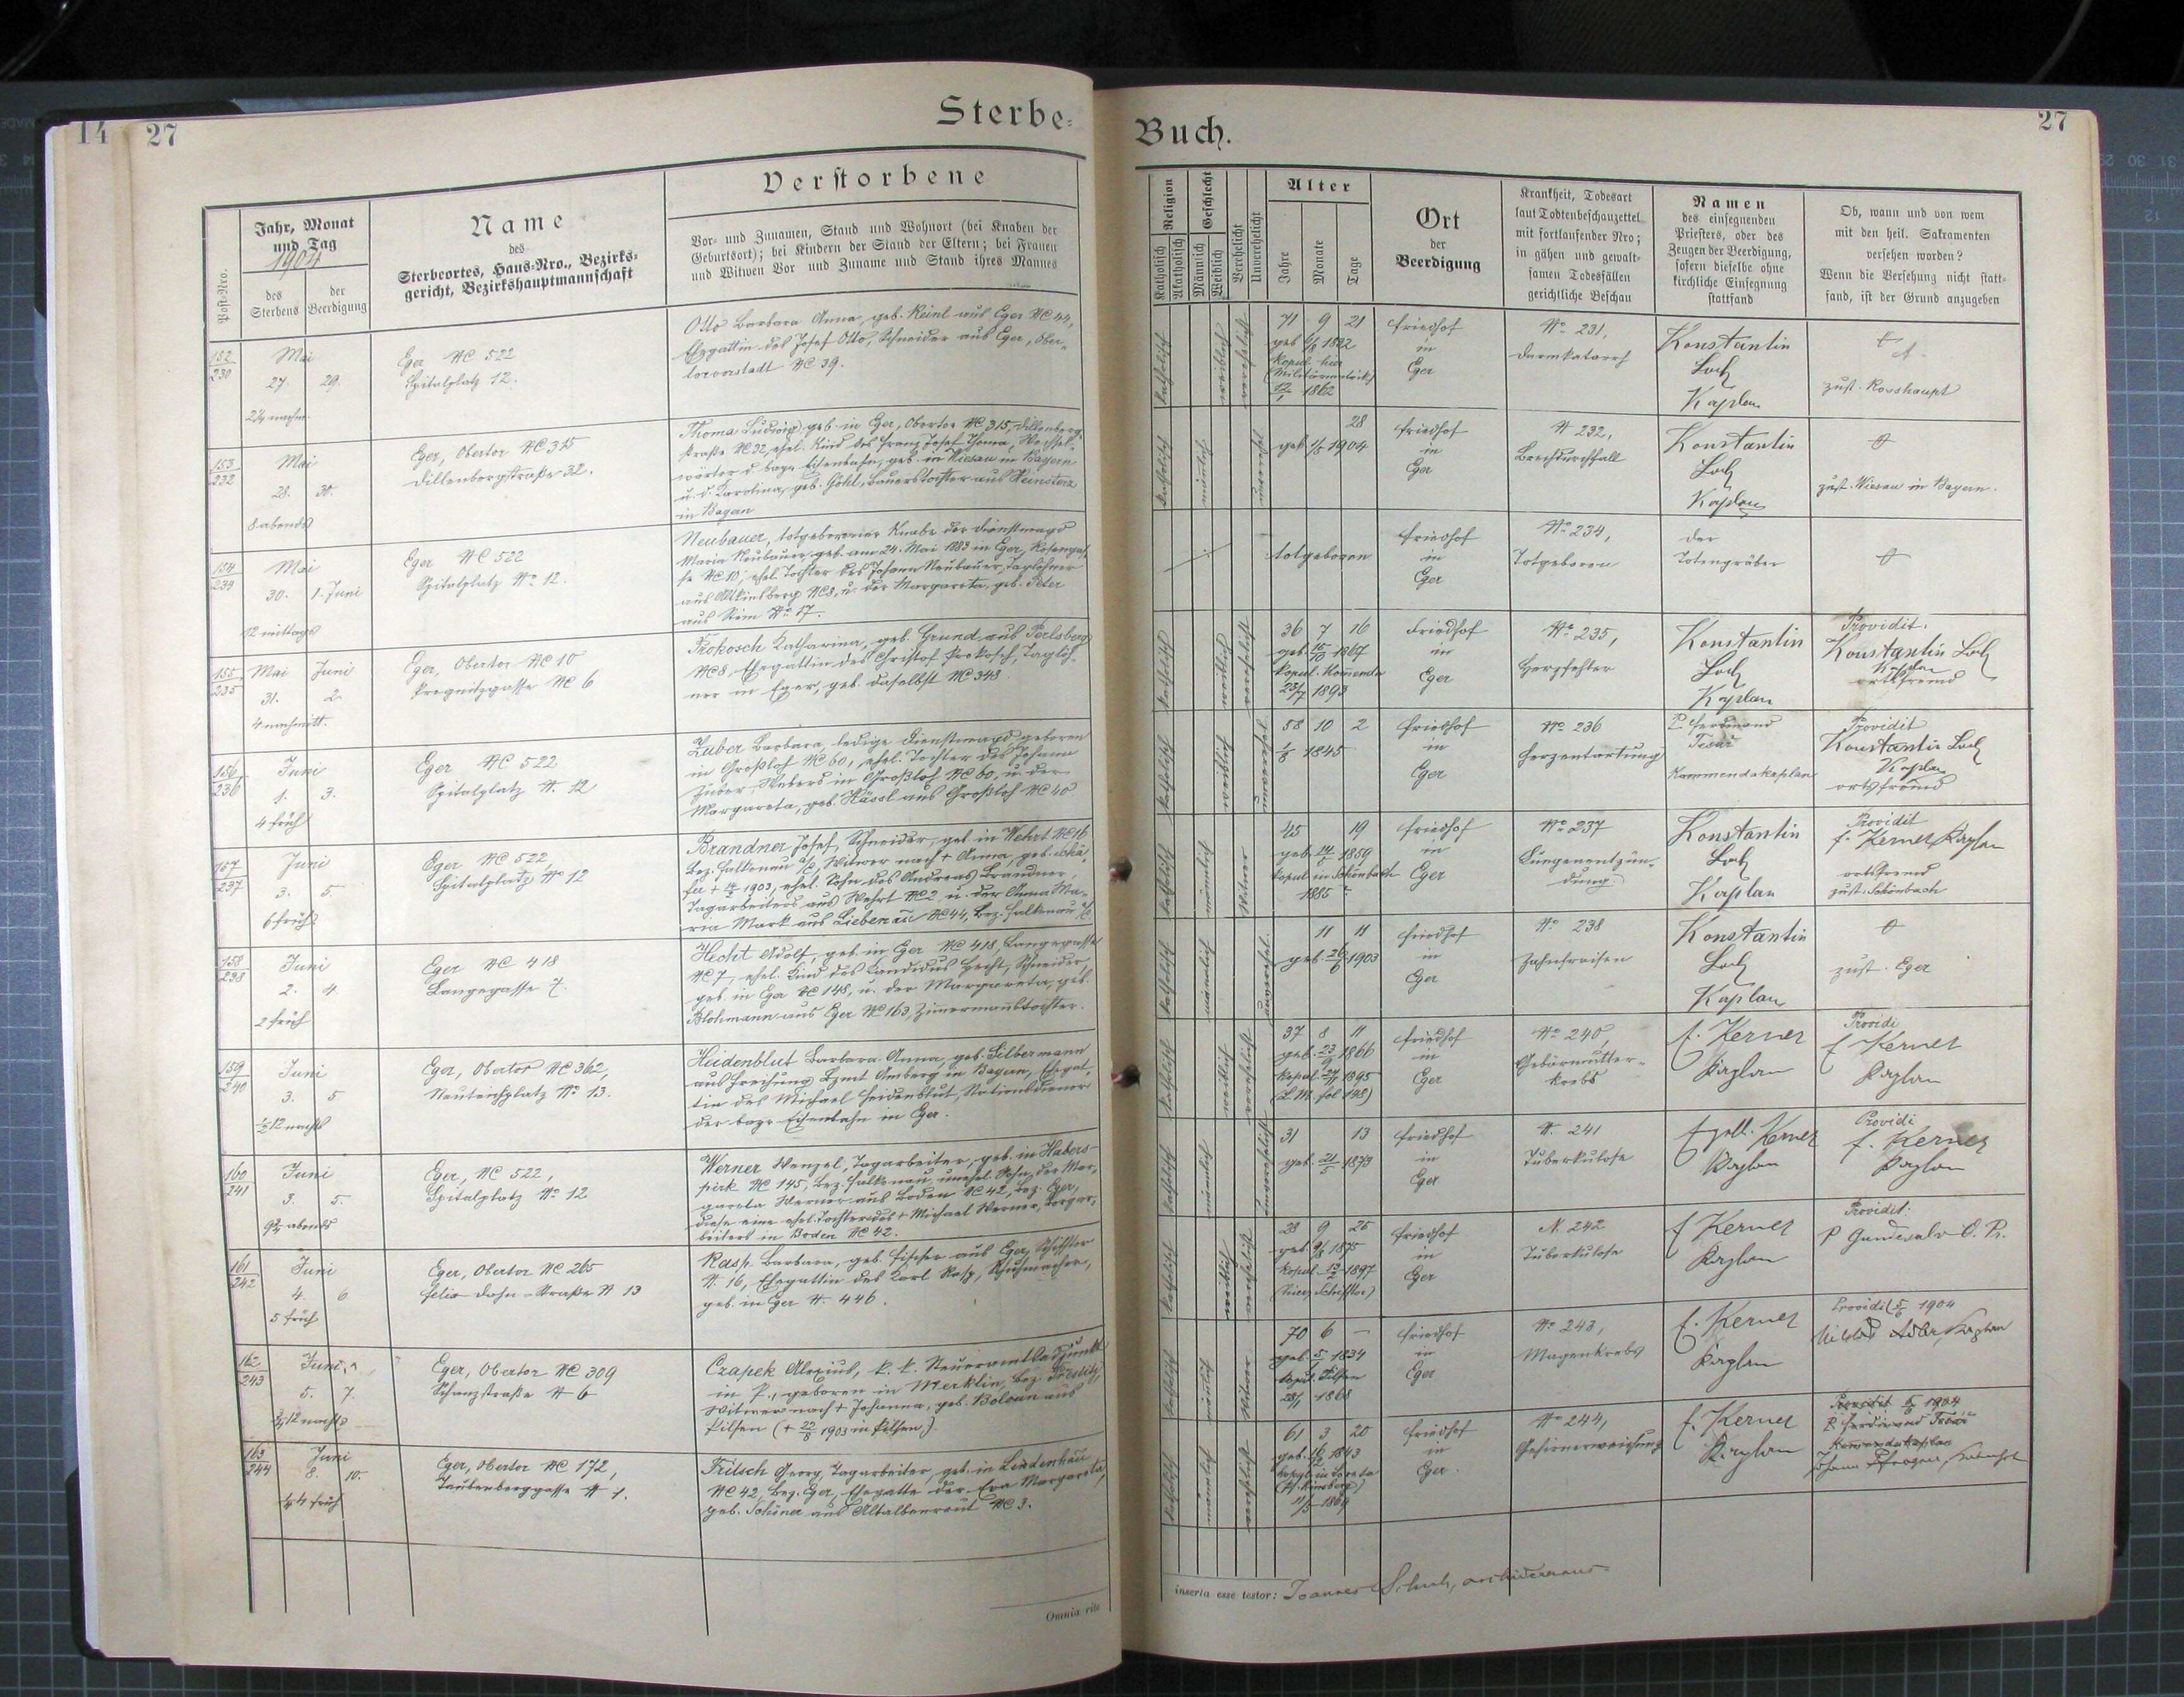 14 27
Sterbe-
Buch.
27
Post-Nro.
Jahr, Monat
und Tag
1904
des
Sterbens
der
Beerdigung
Name
des
Sterbeortes, Haus-Nro., Bezirks-
gericht, Bezirkshauptmannschaft
Verstorbene
Vor- und Zunamen, Stand und Wohnort (bei Knaben der
Geburtsort); bei Kindern der Stand der Eltern; bei Frauen
und Witwen Vor und Zuname und Stand ihres Mannes
Religion
Katholisch
Akatholisch
Geschlecht
Männlich
Weiblich
Verehelicht
Unverehelicht
Alter
Jahre
Monate
Tage
Ort
der
Beerdigung
Krankheit, Todesart
laut Todtenbeschauzettel
mit fortlaufender Nro;
in gähen und gewalt-
samen Todesfällen
gerichtliche Beschau
Namen
des einsegnenden
Priesters, oder des
Zeugen der Beerdigung,
sofern dieselbe ohne
kirchliche Einsegnung
stattfand
Ob, wann und von wem
mit den heil. Sakramenten
versehen worden?
Wenn die Versehung nicht statt-
fand, ist der Grund anzugeben
152
230
Mai
27. 29.
2¼ nachm.
Eger NC 522
Spitalplatz 12.
Otto Barbara Anna, geb. Keinl aus Eger NC 44,
Ehegattin des Josef Otto, Schneider aus Eger, Ober-
torvorstadt NC 39.
katholisch
weiblich
verehelicht
71 9 21
geb. 1832
kopul. hier
1862
Friedhof
in
Eger
No 231,
Darmkatarrh
Konstantin
Loch
Kaplan
zust. Rosshaupt
153
232
Mai
28. 30.
8 abends
Eger, Obertor NC 315
Dillenbergstraße 32.
Thoma Ludwig, geb. in Eger, Obertor NC 315, Dillenberg-
straße NC 32, ehel. Kind des Franz Josef Thoma, Wechsel-
wärter d. bayr. Eisenbahn, geb. in Wiesau in Bayern
u. d. Karolina, geb. Göhl, Bauerstochter aus
in Bayern
katholisch
männlich
unverehel.
28
geb. 1/5 1904
Friedhof
in
Eger
N 232,
Brechdurchfall
Konstantin
Loch
Kaplan
zust. Wiesau in Bayern.
154
234
Mai
30. 1. Juni
12 mittags
Eger NC 522
Spitalplatz No 12.
Neubauer, totgeborener Knabe der Dienstmagd
Maria Neubauer, geb. am 24. Mai 1883 in Eger, Rosengas-
se NC 10, ehel. Tochter des Johann Neubauer, Taglöhner
aus Altkinsberg NC 8, u. der Margareta, geb. Peter
aus No 17.
totgeboren
Friedhof
in
Eger
No 234,
Totgeboren
der
Totengräber
155
235
Mai Juni
31. 2.
4 nachmitt.
Eger, Obertor NC 10
Pregnitzgasse NC 6
Prokosch Katharina, geb. Grund aus Perlsberg
NC 8, Ehegattin des Christof Prokosch, Taglöh-
ner in Eger, geb. daselbst NC 348.
katholisch
weiblich
verehelicht
36 7 16
geb. 15/10 1867
kopul. Komenda
23/7 1893
Friedhof
in
Eger
No. 235,
Herzfehler
Konstantin
Loch
Kaplan
Providit.
Konstantin Loch
Kaplan
ortsfremd
156
236
Juni
1. 3.
4 früh
Eger NC 522
Spitalplatz N. 12
Zuber Barbara, ledige Dienstmagd, geboren
in Großloh NC 60, ehel. Tochter des Johann
Zuber Webers in Großloh NC 60, u. der
Margareta, geb. Hässl aus Großloh NC 40
katholisch
weiblich
unverehel.
58 10 2
1845
Friedhof
in
Eger
No 236
Herzentartung
P. Ferdinand
Tesař
Kommendakaplan
Providit
Konstantin Loch
Kaplan
ortsfremd
157
237
Juni
3. 5.
6 früh
Eger NC 522,
Spitalplatz No 12
Brandner Josef, Schneider, geb. in Wehrt NC 16
Bez. Falkenau a/E, Witwer nach + Anna, geb.
1903, ehel. Sohn des Andreas Brandner,
Tagarbeiters aus Wehrt NC 2 u. der Anna Ma-
ria Mark aus Liebenau NC 44, Bez. Falkenau a/E.
katholisch
männlich
Witwer
45 19
geb. 14/5 1859
kopul. in Schönbach
1885 ?
Friedhof
in
Eger
No 237
Lungenentzün-
dung.
Konstantin
Loch
Kaplan
Providit
F. Kerner Kaplan
ortsfremd
zust. Schönbach
158
238
Juni
2. 4.
2 früh
Eger NC 418
Langegasse 7.
Hecht Adolf, geb. in Eger NC 418, Langegasse
NC 7, ehel. Kind des Kandidus Hecht, Schneider,
geb. in Eger NC 148, u. der Margareta, geb.
Blohmann aus Eger NC 163, Zimmermannstochter.
katholisch
männlich
unverehel.
11 11
geb. 26/6 1903
Friedhof
in
Eger
No 238
Zahnfraisen
Konstantin
Loch
Kaplan
zust. Eger
159
240
Juni
3. 5
½ 12 nachts
Eger, Obertor NC 362,
Neuteichplatz No 13.
Heidenblut Barbara Anna, geb. Silbermann
aus Freihung Bzmt Amberg in Bayern, Ehegat-
tin des Michael Heidenblut, Stationsdiener
der bayr. Eisenbahn in Eger.
katholisch
weiblich
verehelicht
37 8 11
geb. 23/9 1866
kopul. 1895
(L. M. fol 148)
Friedhof
in
Eger
No 240,
Gebärmutter-
krebs
F. Kerner
Kaplan
Providi
F. Kerner
Kaplan
160
241
Juni
3. 5.
9¾ abends
Eger, NC 522,
Spitalplatz No 12
Werner Wenzel, Tagarbeiter, geb. in Habers-
pirk NC 145, Bez. Falkenau, unehel. Sohn der Mar-
gareta Werner aus Boden NC 42, Bez. Eger,
diese eine ehel. Tochter des + Michael Werner, Tagar-
beiters in Boden NC 42.
katholisch
männlich
unverehelicht
31 13
geb. 21/5 1873
Friedhof
in
Eger
N. 241
Tuberkulose
Kerner
Kaplan
Providi
F. Kerner
Kaplan
161
242
Juni
4. 6
5 früh
Eger, Obertor NC 265
Felix Dahn-Straße N 13
Rasp Barbara, geb. Fischer aus Eger, Schifftor
N. 16, Ehegattin des Karl Rasp, Schuhmacher,
geb. in Eger N. 446.
katholisch
weiblich
verehelicht
28 9 25
geb. 1875
kopul. 1897
(hier, Schifftor)
Friedhof
in
Eger
N. 242
Tuberkulose
F Kerner
Kaplan
Providit.
P Gundesalv O. Pr.
162
243
Juni
5. 7.
¾ 12 nachts
Eger, Obertor NC 309
Schanzstraße N 6
Czapek Alexius, k. k. Steueramtsadjunkt
in P., geboren in Merklin, Bez. Přestitz,
Witwer nach + Johanna, geb. Boloun aus
Pilsen (+ 22/8 1903 in Pilsen)
katholisch
männlich
Witwer
70 6 —
geb. 5/ 1834
kopul. Pilsen
28/1 1868
Friedhof
in
Eger
No 243,
Magenkrebs
F. Kerner
Kaplan
Providit 5/6 1904
Adler, Kaplan
163
244
Juni
8. 10.
¼ 4 früh
Eger, Obertor NC 172,
Taubenberggasse N 1.
Fritsch Georg, Tagarbeiter, geb. in Lindenhau
NC 42, Bez. Eger, Ehegatte der Eva Margareta,
geb. Schöner aus Altalbenreut NC 3.
katholisch
männlich
verehelicht
61 3 20
geb. 1843
kopul. in Loreta
(Pf. Kinsberg)
1869
Friedhof
in
Eger.
No 244,
Gehirnerweichung
F. Kerner
Kaplan
Providit 1904
P. Ferdinand Tesař
Komendakaplan
Johann
Omnia rite
inserta esse testor: Joannes Schuh, archidecanus